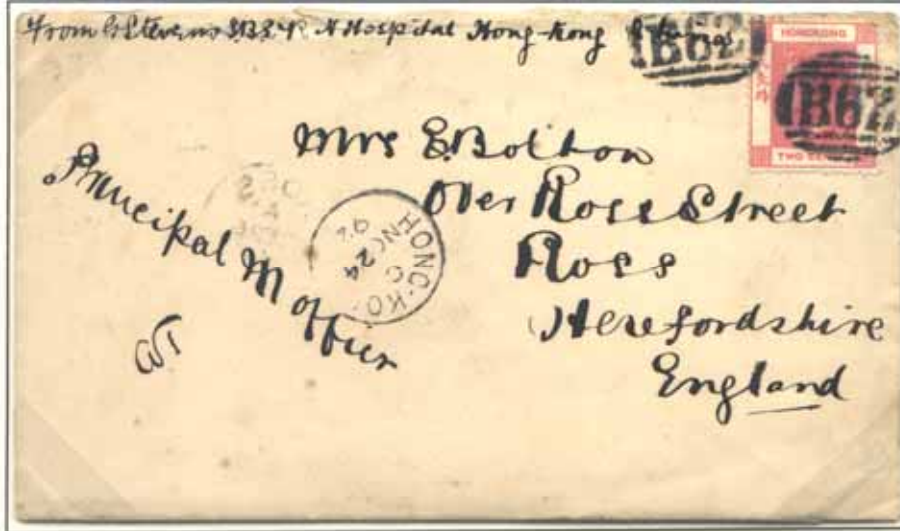 From G Stevens SBS R N Hospital Hong-Kong China
B62
HONG KONG
B62
TWO CENTS
Mrs E. Bolton
Over Ross Street
Ross
Herefordshire
England
Principal M Officer
HONG-KO
C
NO 24
92